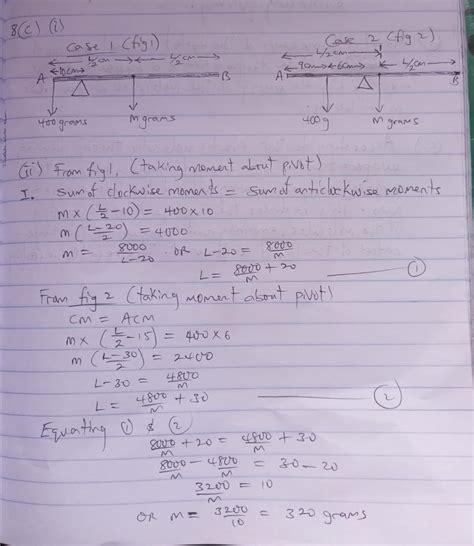 8(c) (i)
Case 1 (fig1)
Case 2 (fig 2)
L/2cm
L/2cm
L/2cm
10cm
9cm
6cm
L/2cm
A
B
A
B
400grams
M grams
400g
M grams
(ii) From fig1, (taking moment about pivot)
I. Sum of clockwise moments = Sum of anticlockwise moments
m × (L/2 – 10) = 400 × 10
m (L–20/2) = 4000
m = 8000/L–20 OR L–20 = 8000/M
L = 8000/M + 20 ——— ①
From fig 2 (taking moment about pivot)
CM = ACM
m× (L/2 – 15) = 400 × 6
m (L–30/2) = 2400
L–30 = 4800/M
L = 4800/M + 30 ——— ②
Equating ① & ②
8000/M + 20 = 4800/M + 30
8000/M – 4800/M = 30 – 20
3200/M = 10
OR M = 3200/10 = 320 grams